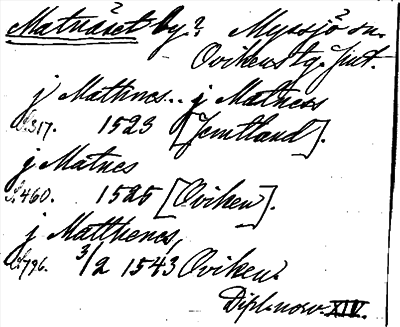 Matnäset by? Myssjö sn.
Ovikens tg. Jmt.
j Mathnes.. j Matness
s. 317. 1523 [Jemtland].
j Matnes
s. 460. 1525 [Oviken].
j Matthenes,
s. 796. 3/2 1543 Oviken.
Dipl. norv. XIV.